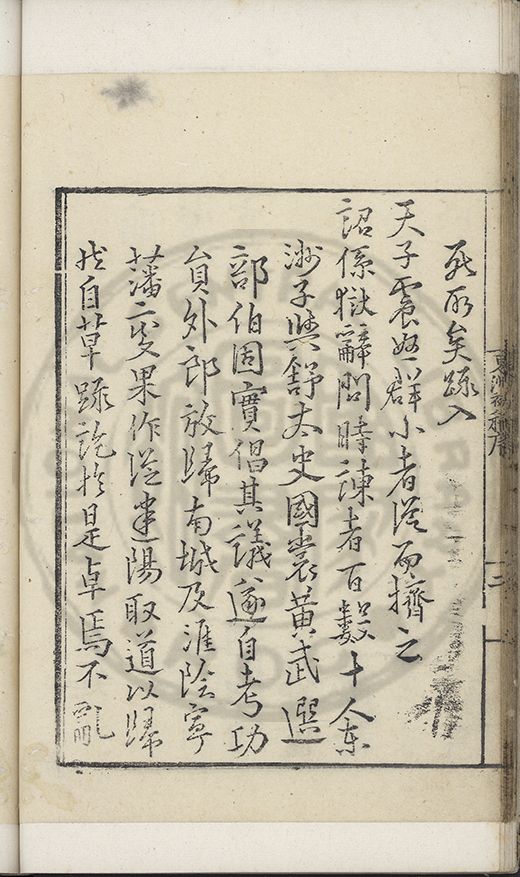 死所矣疏入
天子震怒群小者從而擠之
詔係獄辭問時諫者百數十人東
洲子與舒太史國裳黃武選
部伯固實倡其議遂自考功
員外郎放歸南城及淮陰寧
藩之變果作從建陽取道以歸
於自草疏訖於是卓焉不亂
東洲初稿序
三